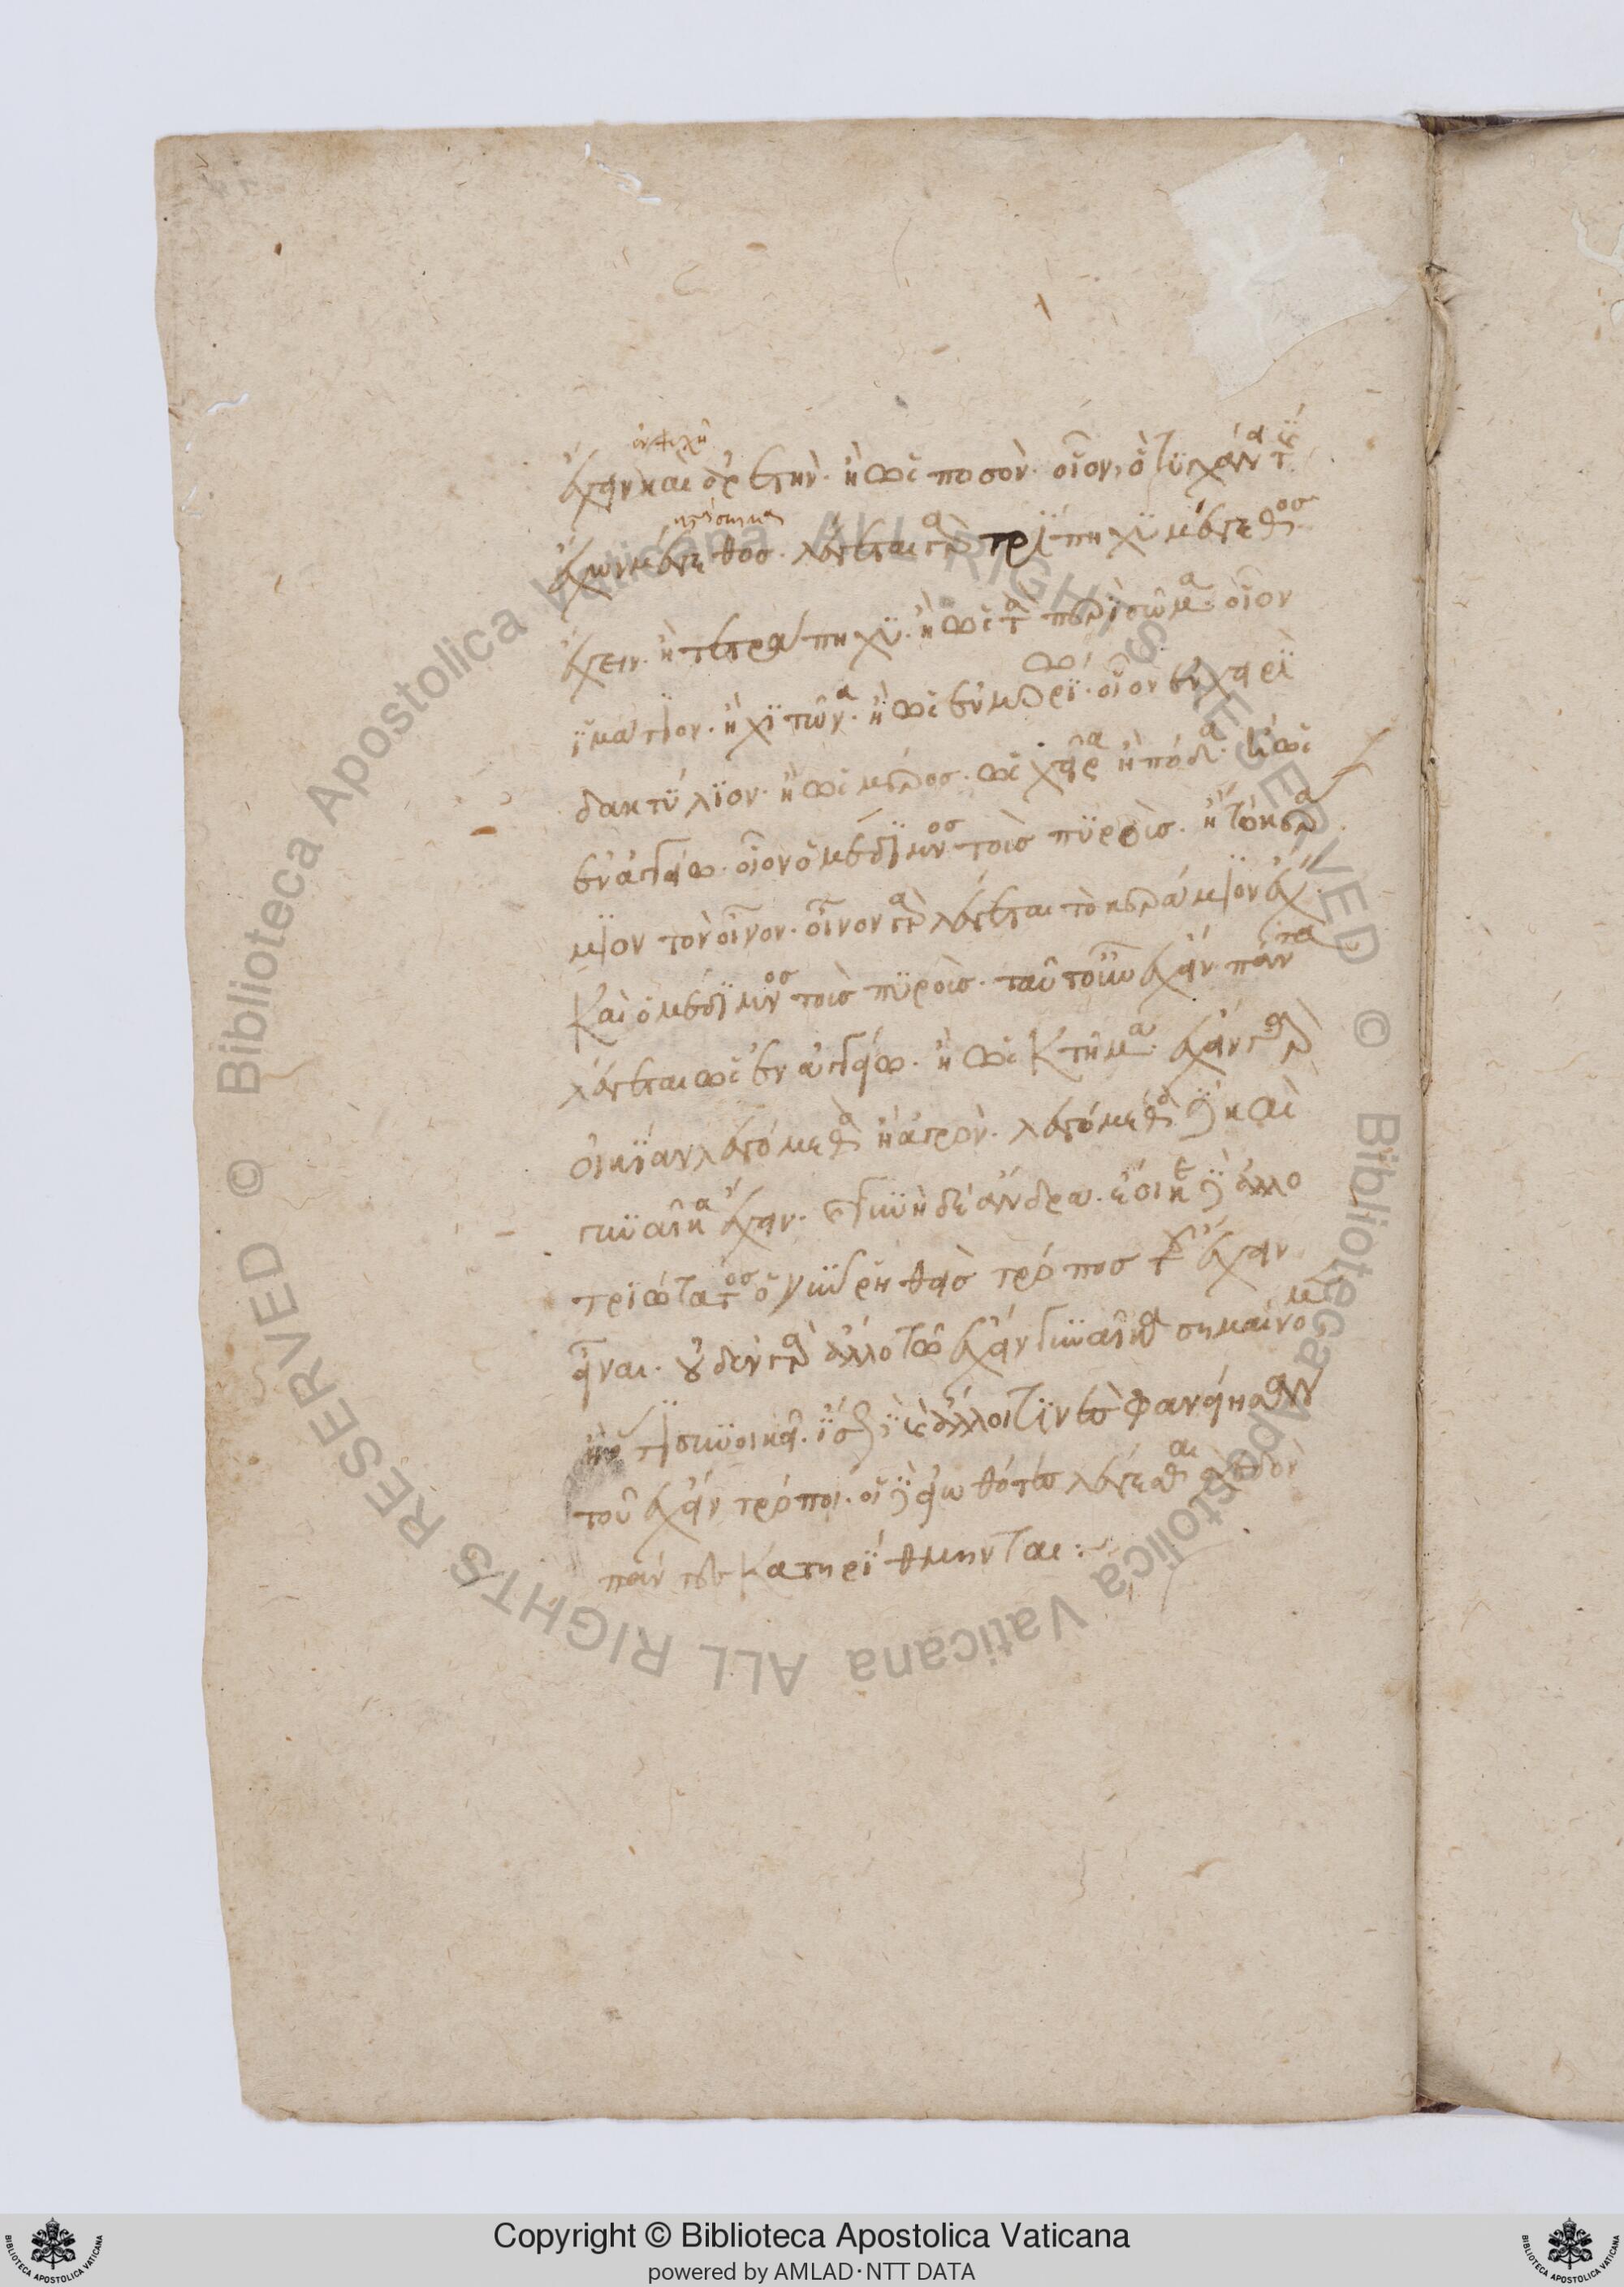 ἐν ψυχῇ
ἔχειν καὶ ἀρετήν· ἢ ὡς ποσόν· οἷον, ὃ τυγχάνει τις
ἔχων μέγεθος· λέγεται γὰρ τρίπηχυ μέγεθος
ἔχειν· ἢ τετράπηχυ· ἢ ὡς τὰ περὶ τὸ σῶμα· οἷον
ἱμάτιον· ἢ χιτῶνα· ἢ ὡς ἐν μορίῳ· οἷον ἐν χειρὶ
δακτύλιον· ἢ ὡς μέρος· ὡς χεῖρα ἢ πόδα· ἢ ὡς
ἐν ἀγγείῳ· οἷον ὁ μέδιμνος τοὺς πυρούς· ἢ τὸ κερά
μιον τὸν οἶνον· οἶνον γὰρ λέγεται τὸ κεράμιον ἔχειν·
καὶ ὁ μέδιμνος τοὺς πυρούς· ταῦτ' οὖν ἔχειν πάντα
λέγεται ὡς ἐν ἀγγείῳ· ἢ ὡς κτῆμα· ἔχειν γὰρ
οἰκίαν λεγόμεθα ἢ ἀγρόν· λεγόμεθα δὲ καὶ
γυναῖκα ἔχειν· καὶ γυνὴ δὲ ἄνδρα· ἔοικε δὲ ἀλλο
τριώτατος ὁ νῦν ῥηθεὶς τρόπος τοῦ ἔχειν
εἶναι· οὐδὲν γὰρ ἄλλο τῷ ἔχειν γυναῖκα σημαίνομεν
ἢ ὅτι συνοικεῖ· ἴσως δ' ἂν καὶ ἄλλοι τινὲς φανείησαν
τοῦ ἔχειν τρόποι· οἱ δὲ εἰωθότες λέγεσθαι σχεδὸν
πάντες κατηρίθμηνται :~
Copyright © Biblioteca Apostolica Vaticana
powered by AMLAD·NTT DATA